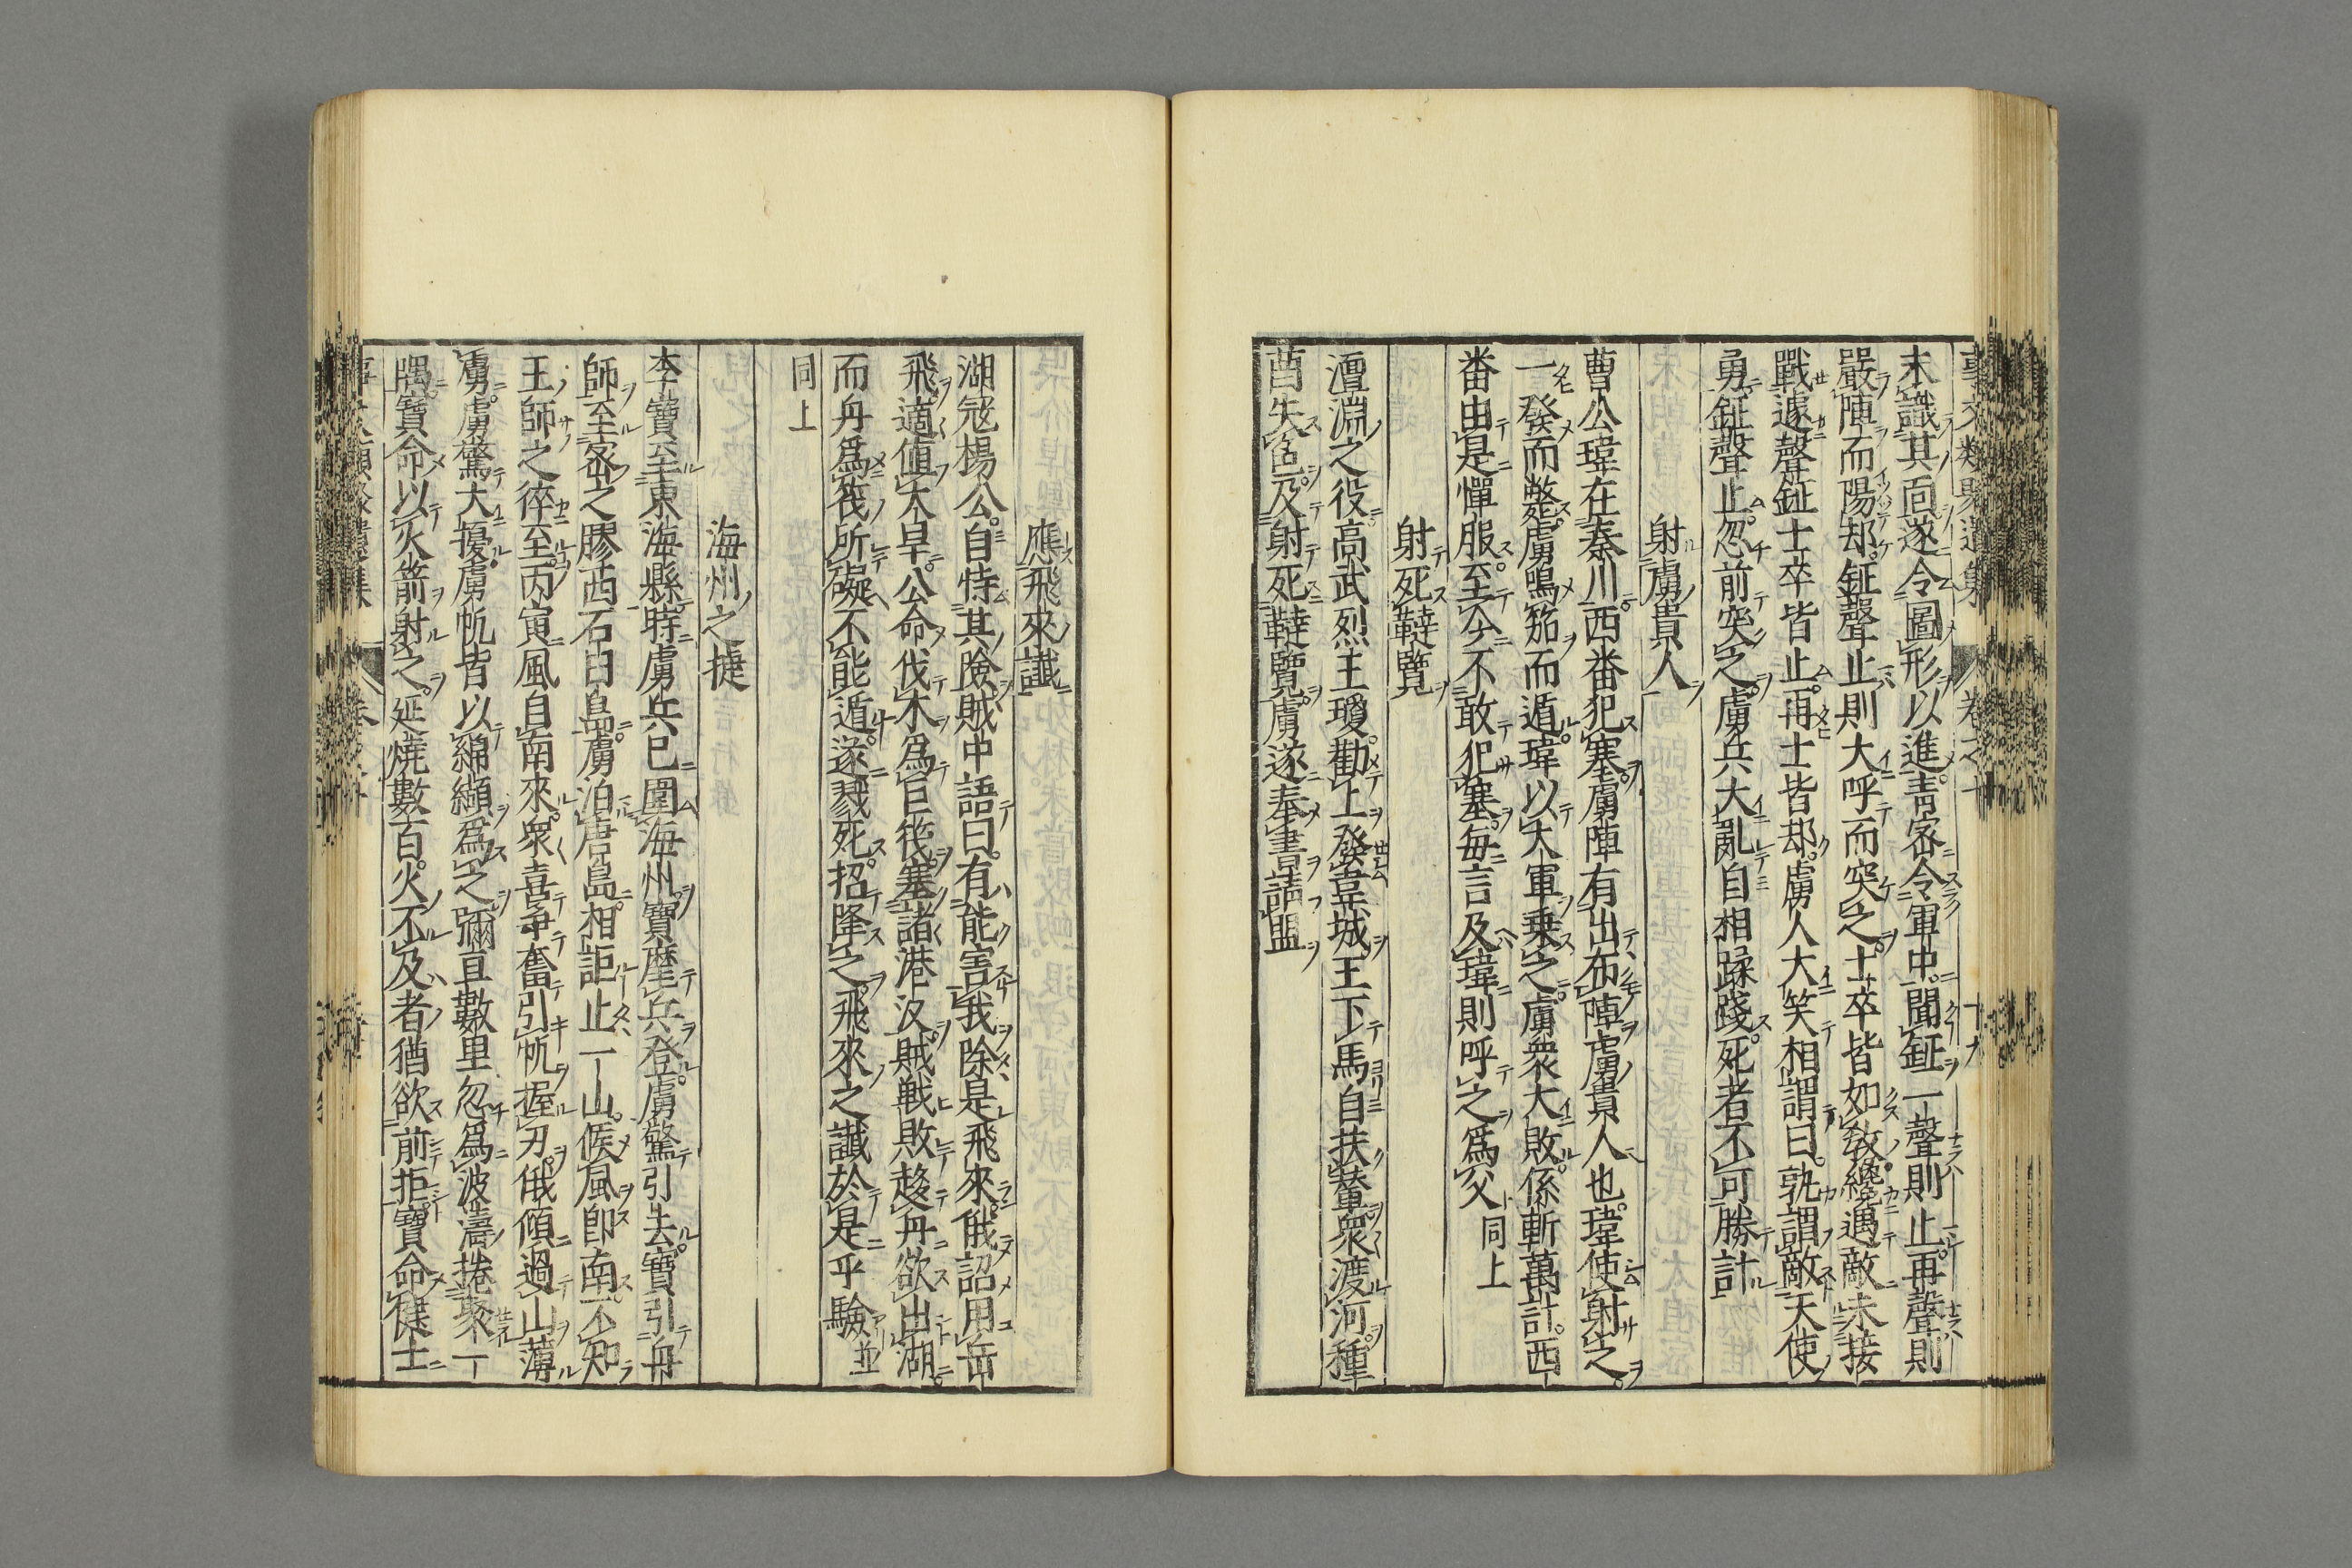 事文類聚遺集 卷之十 十九
末識其面遂令圖形以進青密令軍中聞鉦一聲則止再聲則
嚴陣而陽却鉦聲止則大呼而突之士卒皆如敎纔遇敵未接
戰遽聲鉦士卒皆止再士皆却虜人大笑相謂曰孰謂敵天使
勇鉦聲止忽前突之虜兵大亂自相蹂踐死者不可勝計
射虜貴人
曹公瑋在秦川西番犯塞虜陣有出布陣虜貴人也瑋使射之
一發而斃虜鳴笳而遁瑋以大軍乗之虜衆大敗係斬萬計西
番由是憚服至今不敢犯塞毎言及瑋則呼之爲父 同上
射死韃覽
澶淵之役高武烈王瓊勸上發 城王下馬自扶輦衆渡河種
酋失色及射死韃覽虜遂奉書請盟
應飛來讖
湖冦楊公自恃其險賊中語曰有能害我除是飛來俄詔用岳
飛適値大旱公命伐木爲巨筏塞諸港汊賊戦敗趍舟欲出湖
而舟爲筏所礙不能遁遂戮死招降之飛來之讖於是乎驗並
同上
海州之捷
李寶至東海縣時虜兵已圍海州寶麾兵登虜驚引去寶引舟
師至密之膠西石臼島虜泊唐島相詎止一山候風即南不知
王師之猝至丙寅風自南來衆喜争奮引帆握刃俄傾過山薄
虜虜驚大擾虜帆皆以綿纈爲之彌亘數里忽爲波濤捲聚一
隅寶命以火箭射之延燒數百火不及者猶欲前拒寶命健士